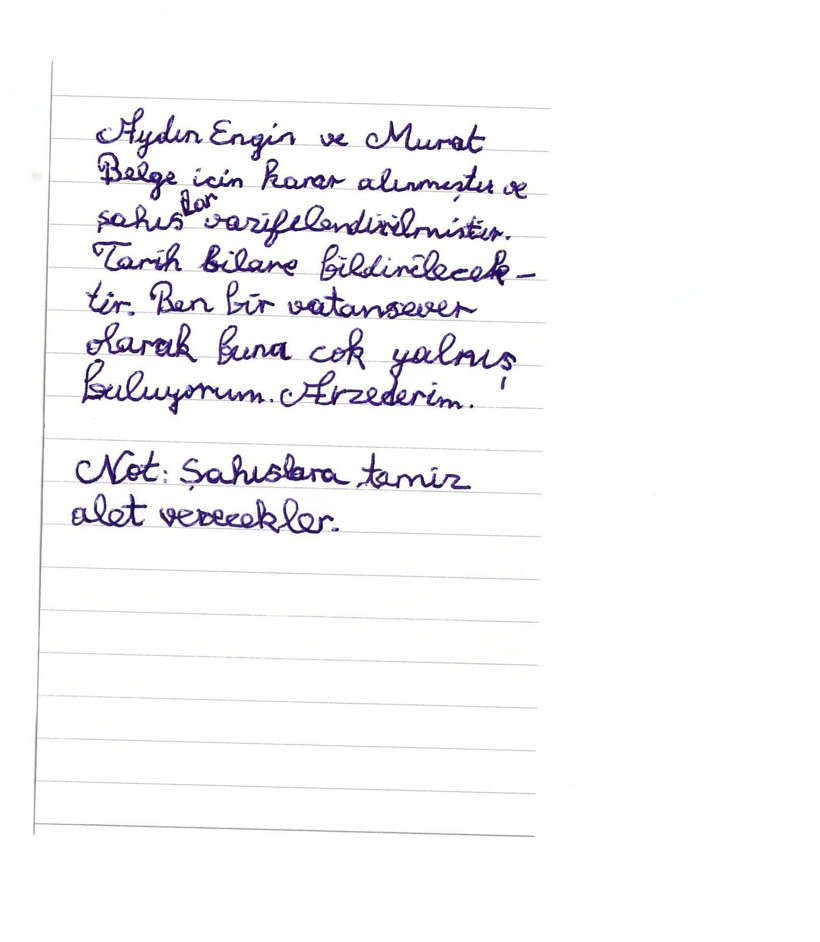 Aydın Engin ve Murat
Belge icin karar alınmıştır ve
şahıslar vazifelendirilmistir.
Tarih bilane bildirilecek-
tir. Ben bir vatansever
olarak buna cok yalnış
buluyorum. Arzederim.
Not: Şahıslara tamiz
alet verecekler.